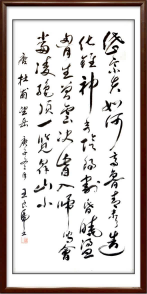 岱宗夫如何齊魯青未了造
化鍾神秀陰陽割昏曉盪
胸生曾雲決眥入歸鳥會
當凌絕頂一覽眾山小
唐杜甫望岳庚子